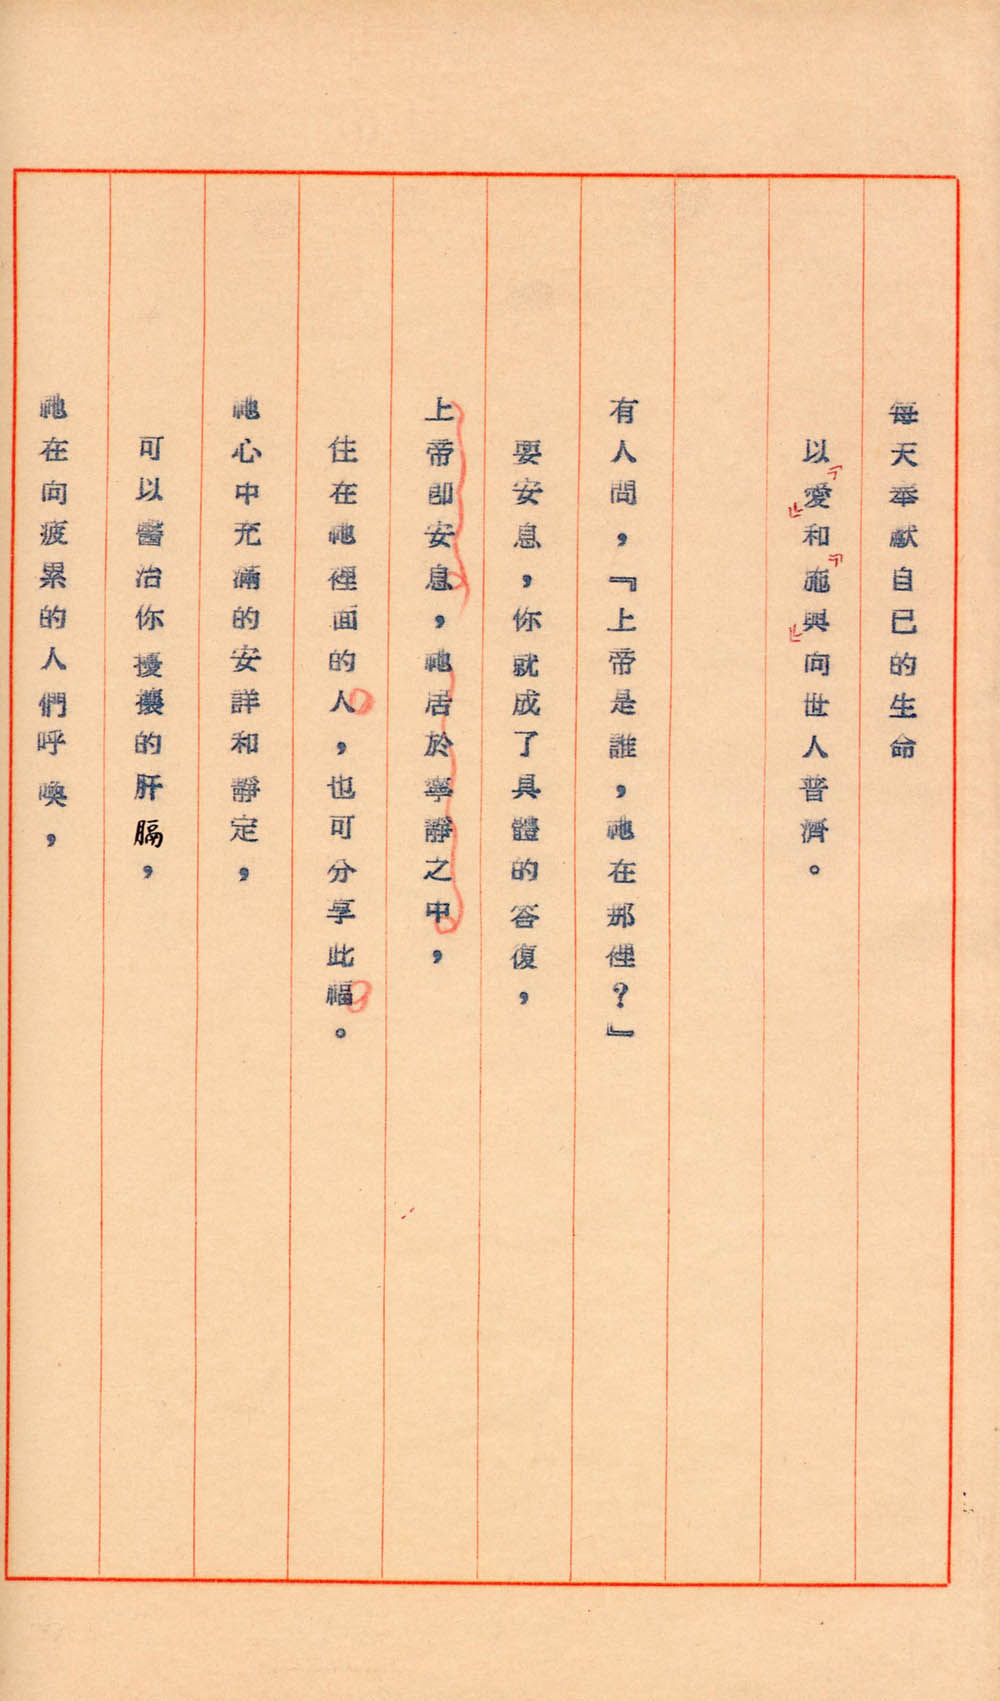 每天奉献自已的生命
以「愛」和「施與」向世人普濟。
有人問，『上帝是誰，祂在那裡？』
要安息，你就成了具體的答復，
上帝即安息，祂居於寧靜之中，
住在祂裡面的人，也可分享此福。
祂心中充滿的安詳和靜定，
可以醫治你擾攘的肝膈，
祂在向疲累的人們呼喚，